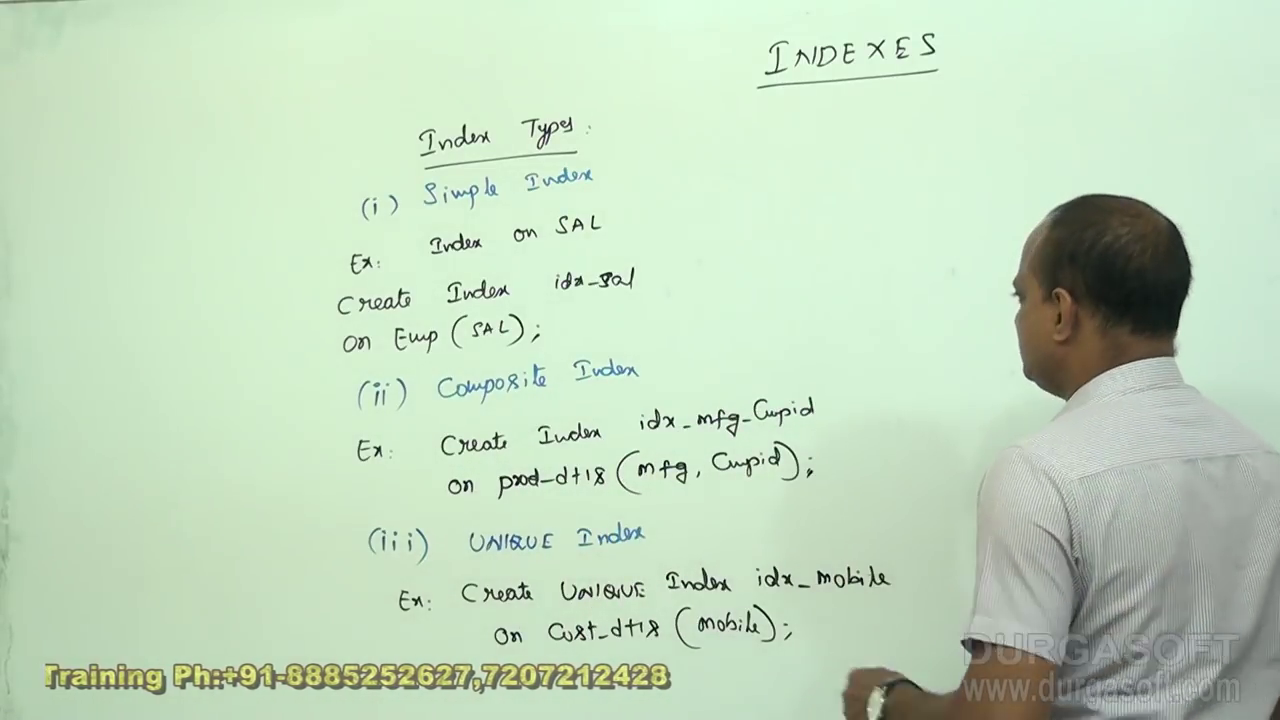 INDEXES
Index Types:
(i) Simple Index
Ex: Index on SAL
Create Index idx-sal
on Emp (SAL);
(ii) Composite Index
Ex: Create Index idx-mfg-Cmpid
on prod-dtls (mfg, Cmpid);
(iii) UNIQUE Index
Ex: Create UNIQUE Index idx-mobile
on Cust-dtls (mobile);
Training Ph:+91-8885252627,7207212428
DURGASOFT
www.durgasoft.com